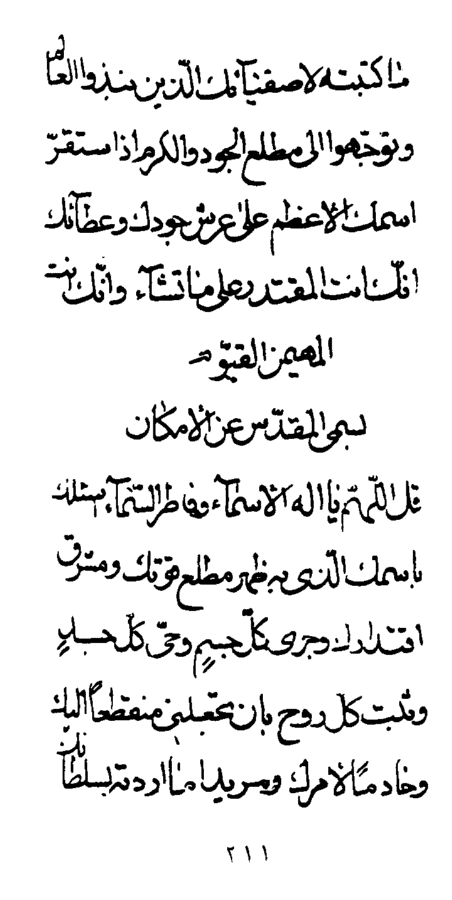 ما كتبته لاصفيآئك الّذين نبذوا العالم
و توجّهوا الى مطلع الجود والكرم اذا ستقرّ
اسمك الاعظم على عرش جودك و عطآئك
انّك انت المقتدر على ما تشآء و انّك انت
المهيمن القيّوم
بسمى المقدّس عن الامكان
قل اللّهمّ يا اله الاسمآء و فاطر السّمآء اسئلك
باسمك الّذى به ظهر مطلع قوّتك و مشرق
اقتدارك و جرى كلّ جسيم و حىّ كلّ جسد
و ثبت كلّ روح بان تجعلنى منقطعاً اليك
و خادماً لامرك و مريدا ما اردته بسلطانك
٢١١